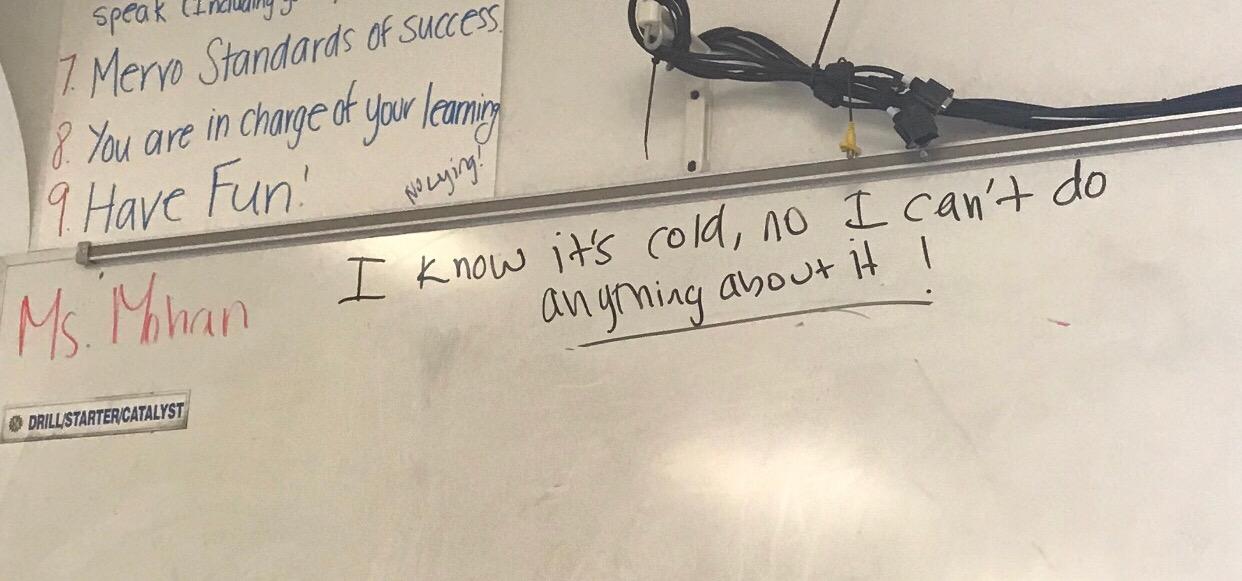 speak (Including
7. Mervo Standards of success.
8. You are in charge of your learning
9. Have Fun!
No lying!
I know it's cold, no I can't do
anything about it!
Ms. Mohan
DRILL/STARTER/CATALYST